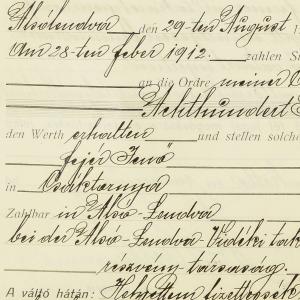 Alsólendva den 29-ten August 1
Am 28-ten feber 1912. zahlen S
an die Ordre meiner
Achthundert
den Werth erhalten und stellen solche
fejér Jenö
in Csáktornya
Zahlbar in Alsó-Lendva
bei der Alsó-Lendva-Vidéki tak
részvény-társaság.
A váltó hátán: Helyettem fizettessék